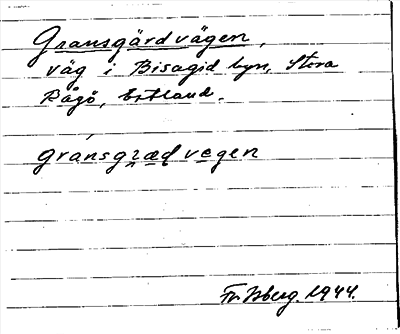 Gransgärdvägen,
väg i Bisagid byn, Stora
Rågö, Estland.
gránsgræd vegen
Fr. Isberg. 1944.